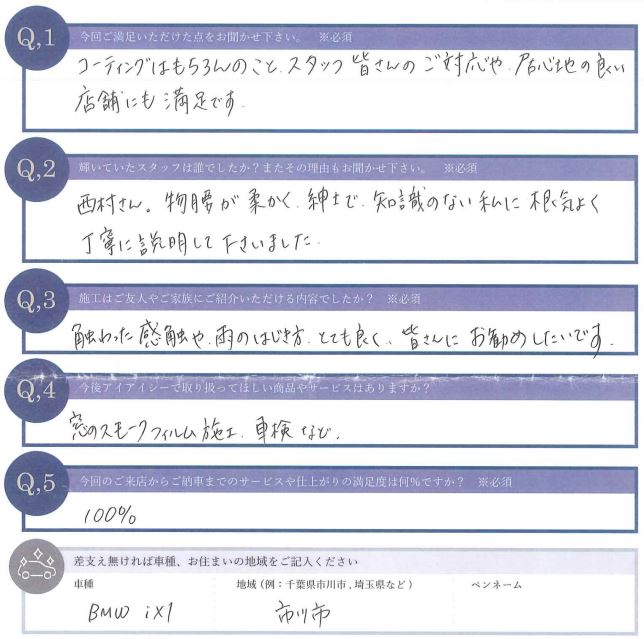 Q,1 今回ご満足いただけた点をお聞かせ下さい。 ※必須
コーティングはもちろんのこと、スタッフ皆さんのご対応や、居心地の良い
店舗にも満足です.
Q,2 輝いていたスタッフは誰でしたか？またその理由もお聞かせ下さい。 ※必須
西村さん。物腰が柔かく、紳士で、知識のない私に根気よく
丁寧に説明して下さいました.
Q,3 施工はご友人やご家族にご紹介いただける内容でしたか？ ※必須
触わった感触や、雨のはじき方、とても良く、皆さんにお勧めしたいです.
Q,4 今後アイアイシーで取り扱ってほしい商品やサービスはありますか？
窓のスモークフィルム施工、車検など.
Q,5 今回のご来店からご納車までのサービスや仕上がりの満足度は何%ですか？ ※必須
100%
差支え無ければ車種、お住まいの地域をご記入ください
車種 地域(例：千葉県市川市,埼玉県など) ペンネーム
BMW iX1 市川市